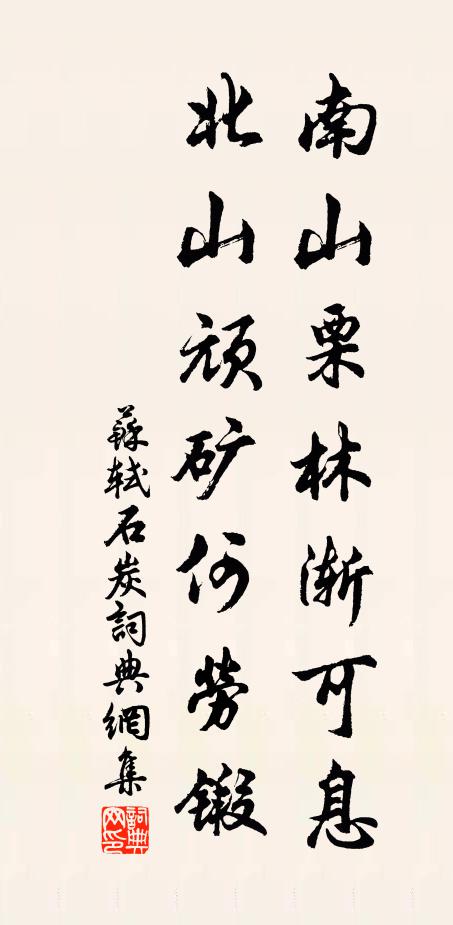 南山栗林渐可息
北山顽矿何劳锻
蘇軾石炭詞典網集
詞典網印